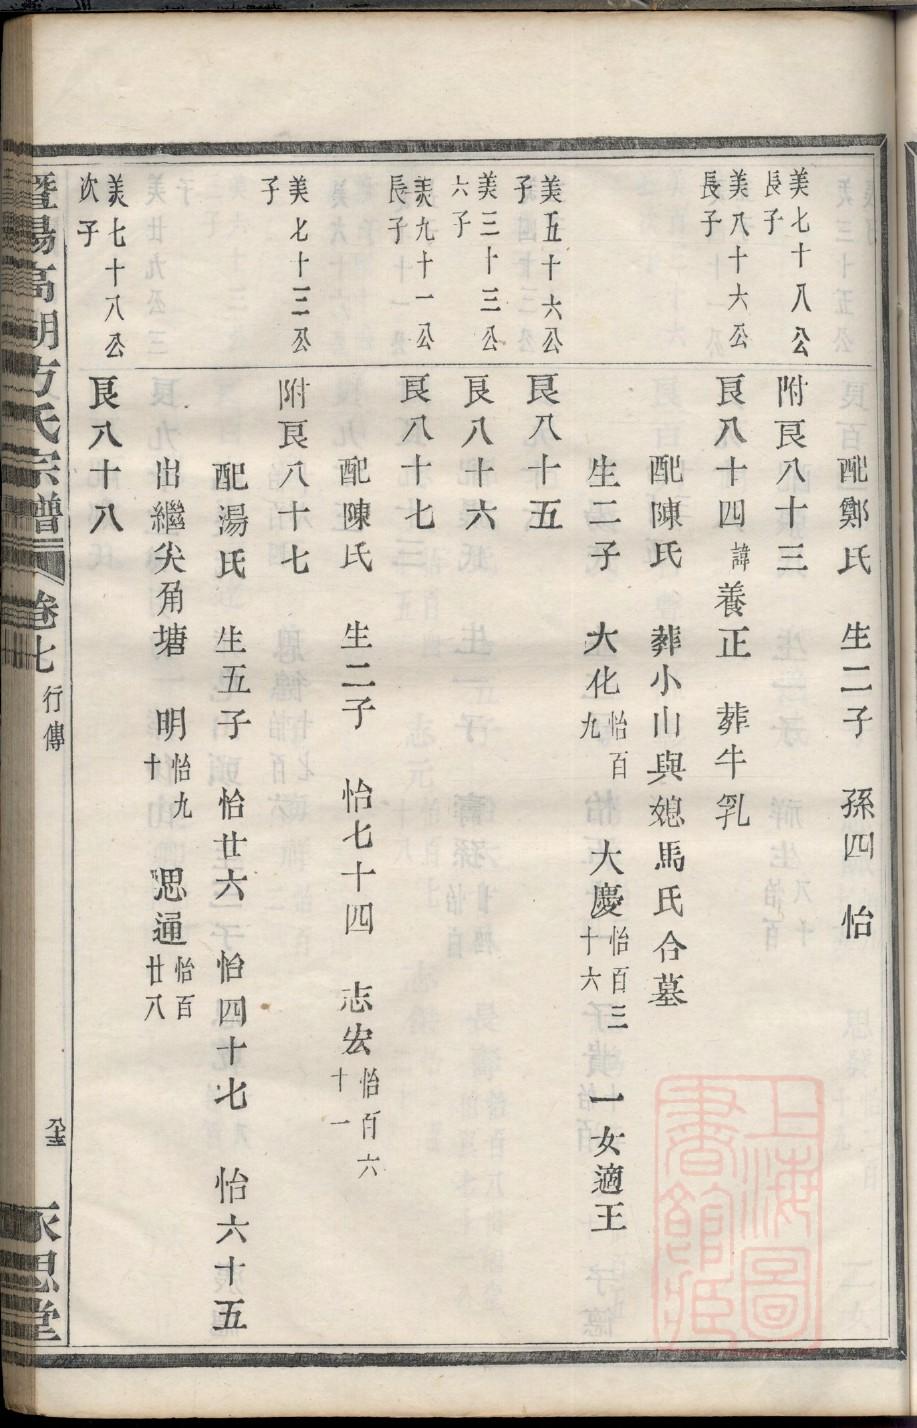 配鄭氏 生二子 孫四 怡
美七十八公長子 附良八十三
美八十六公長子 良八十四 諱養正 葬牛乳
配陳氏 葬小山與媳馬氏合墓
生二子 大化 怡百九 大慶 怡百三十六 一女適王
美五十六公子 良八十五
美三十三公六子 良八十六
美九十一公長子 良八十七
配陳氏 生二子 怡七十四 志宏 怡百六十一
美七十三公子 附良八十七
配湯氏 生五子 怡廿六 怡四十七 怡六十五
出繼尖角塘 明 怡九十 思通 怡百廿八
美七十八公次子 良八十八
暨陽高湖方氏宗譜 卷七 行傳 永思堂
上海圖書館藏